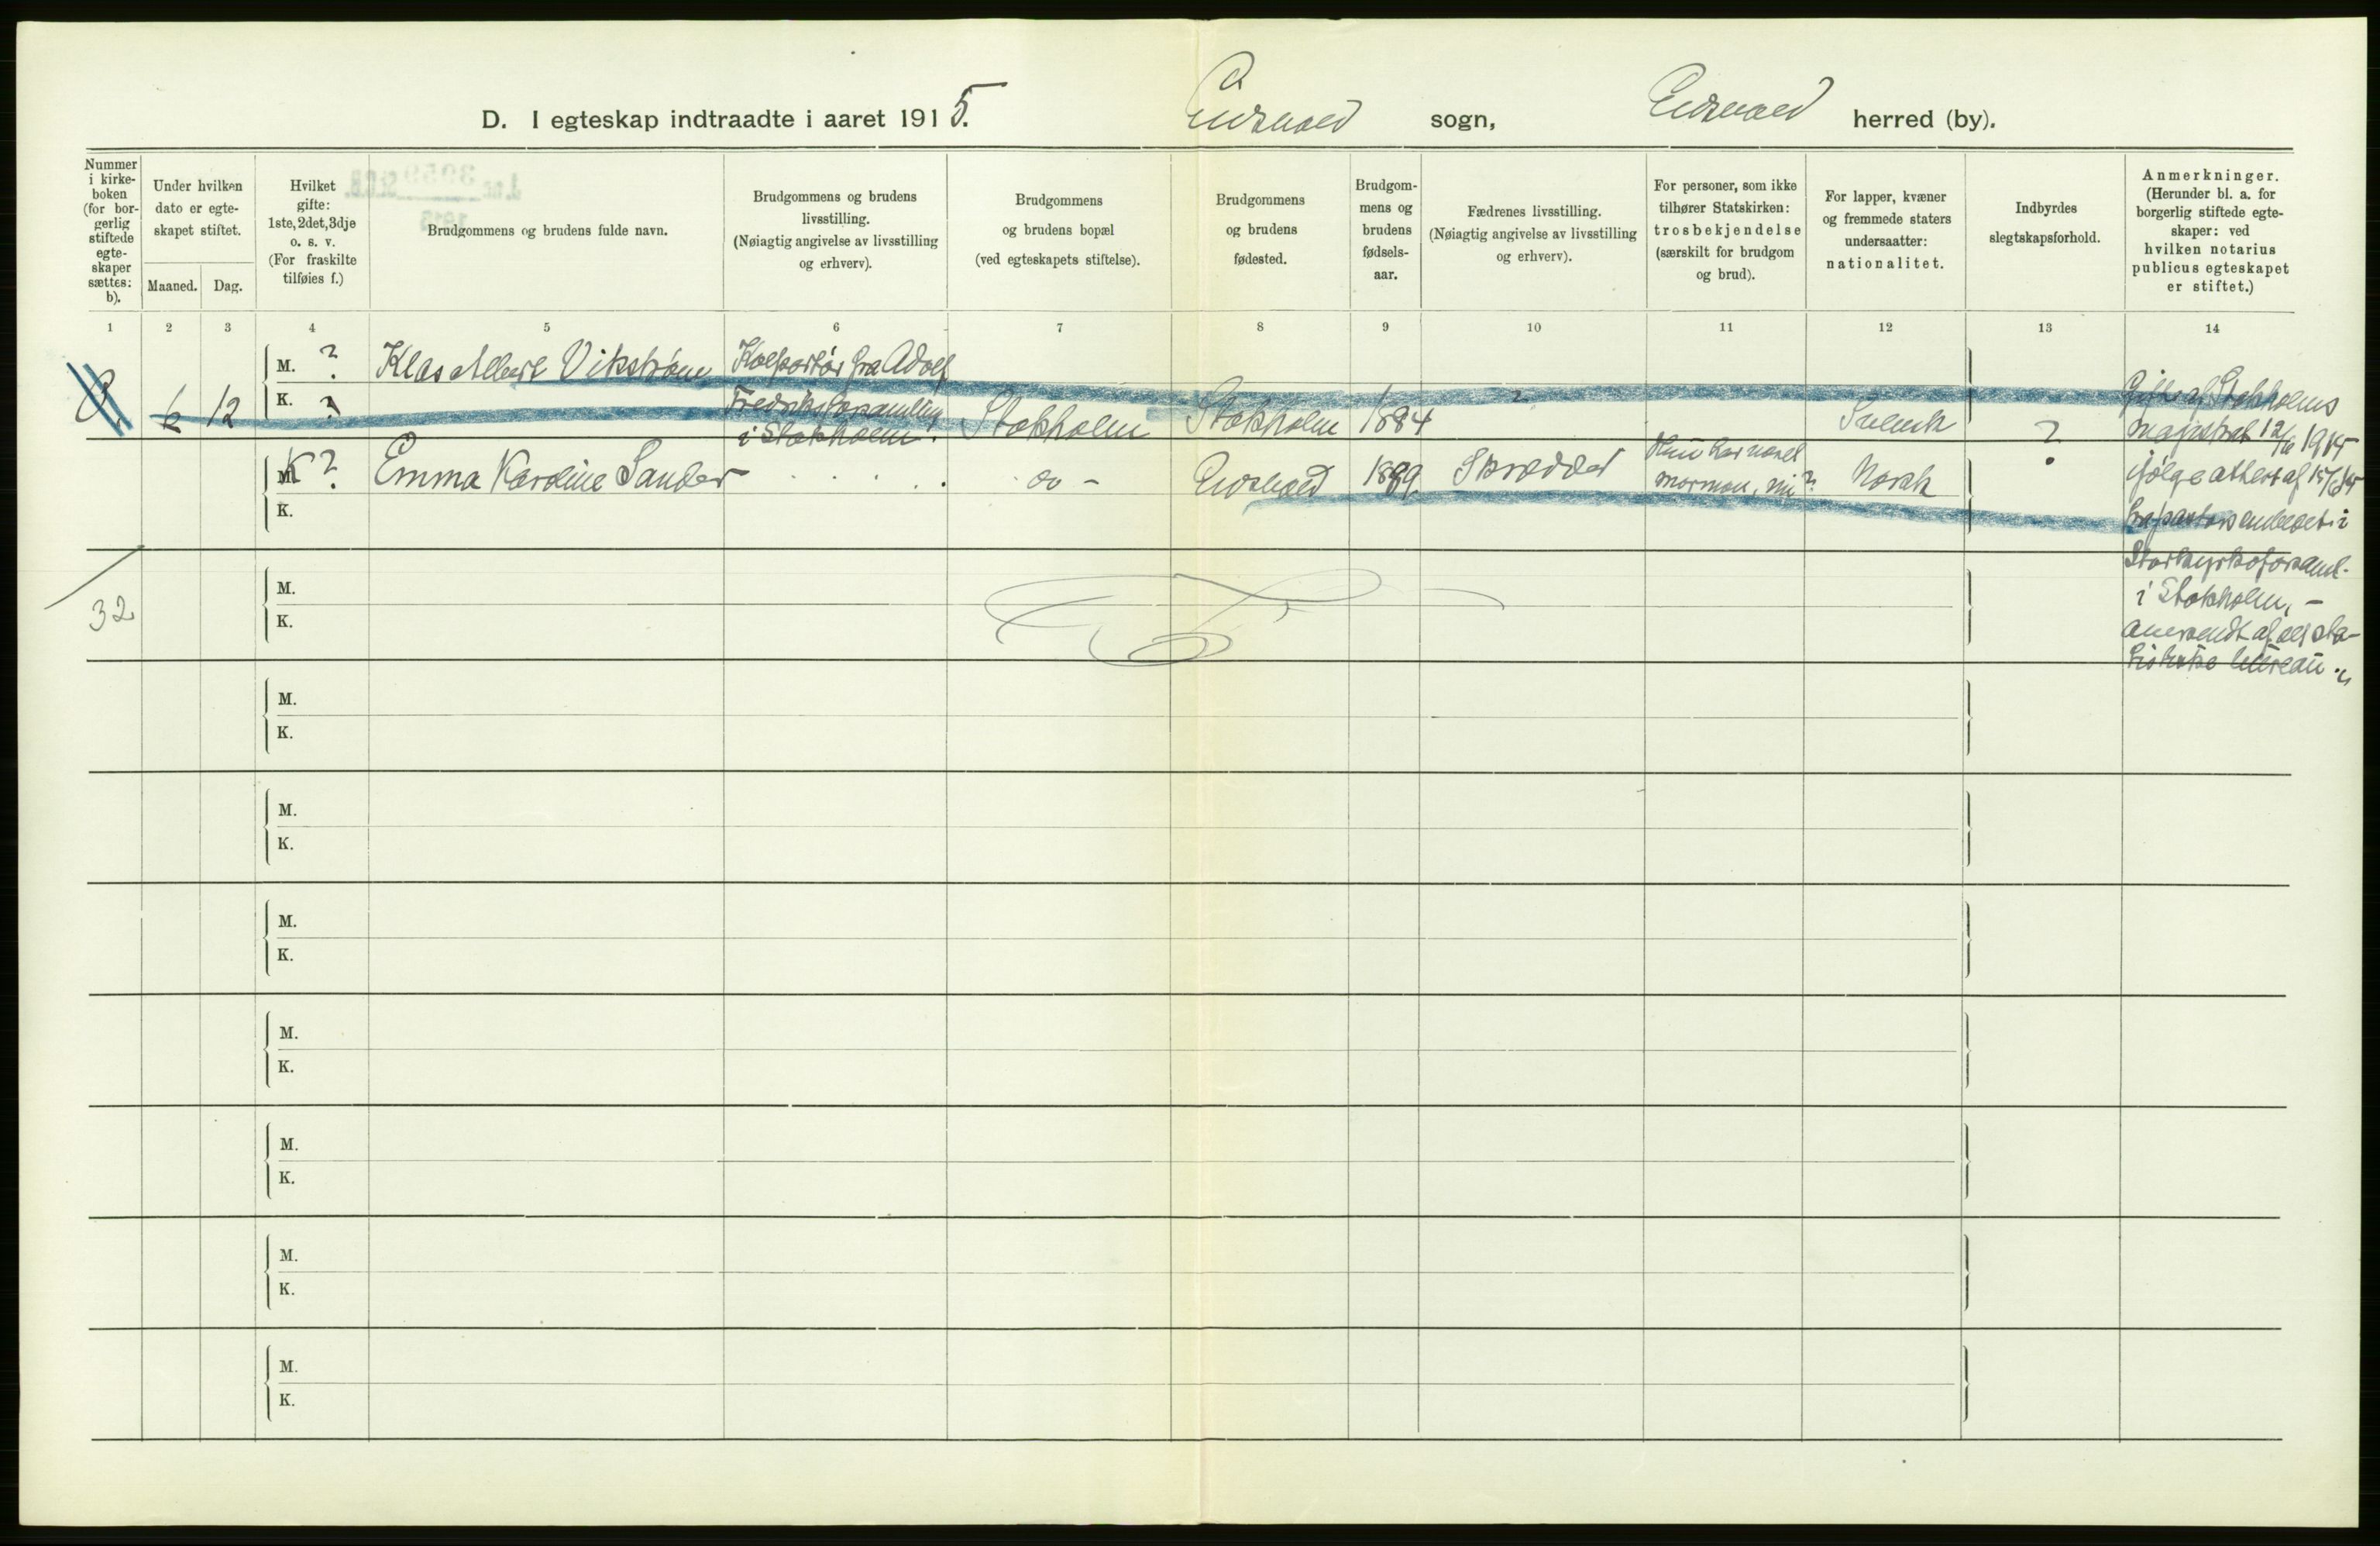 D. I egteskap indtraadte i aaret 1915. Eidsvold sogn, Eidsvold herred (by).
Nummer i kirkeboken (for borgerlig stiftede egteskaper sættes: b).
Under hvilken dato er egteskapet stiftet.
Maaned. Dag.
Hvilket gifte: 1ste, 2det, 3dje o. s. v. (For fraskilte tilføies f.)
Brudgommens og brudens fulde navn.
Brudgommens og brudens livsstilling. (Nøiagtig angivelse av livsstilling og erhverv).
Brudgommens og brudens bopæl (ved egteskapets stiftelse).
Brudgommens og brudens fødested.
Brudgommens og brudens fødselsaar.
Fædrenes livsstilling. (Nøiagtig angivelse av livsstilling og erhverv).
For personer, som ikke tilhører Statskirken: trosbekjendelse (særskilt for brudgom og brud).
For lapper, kvæner og fremmede staters undersaatter: nationalitet.
Indbyrdes slegtskapsforhold.
Anmerkninger. (Herunder bl. a. for borgerlig stiftede egteskaper: ved hvilken notarius publicus egteskapet er stiftet.)
1 2 3 4 5 6 7 8 9 10 11 12 13 14
6 12 M. ? Klas Albert Vikstrøm Kolportør fra Adolf
K. ? Fredriks forsamling
i Stokholm. Stokholm Stokholm 1884 ? Svensk ?
K ? Emma Karoline Sander do - Eidsvold 1889. Skrædder Hun har været
mormon, nu ? Norsk
K.
Gift af Stokholms
magistrat 12/6 1915
ifølge attest af 15/6 15
fra pastorsembedet i
Storkyrkoforsaml.
i Stokholm, -
anersendt af det sta-
tistiske bureau.
32
M.
K.
M.
K.
M.
K.
M.
K.
M.
K.
M.
K.
M.
K.
M.
K.